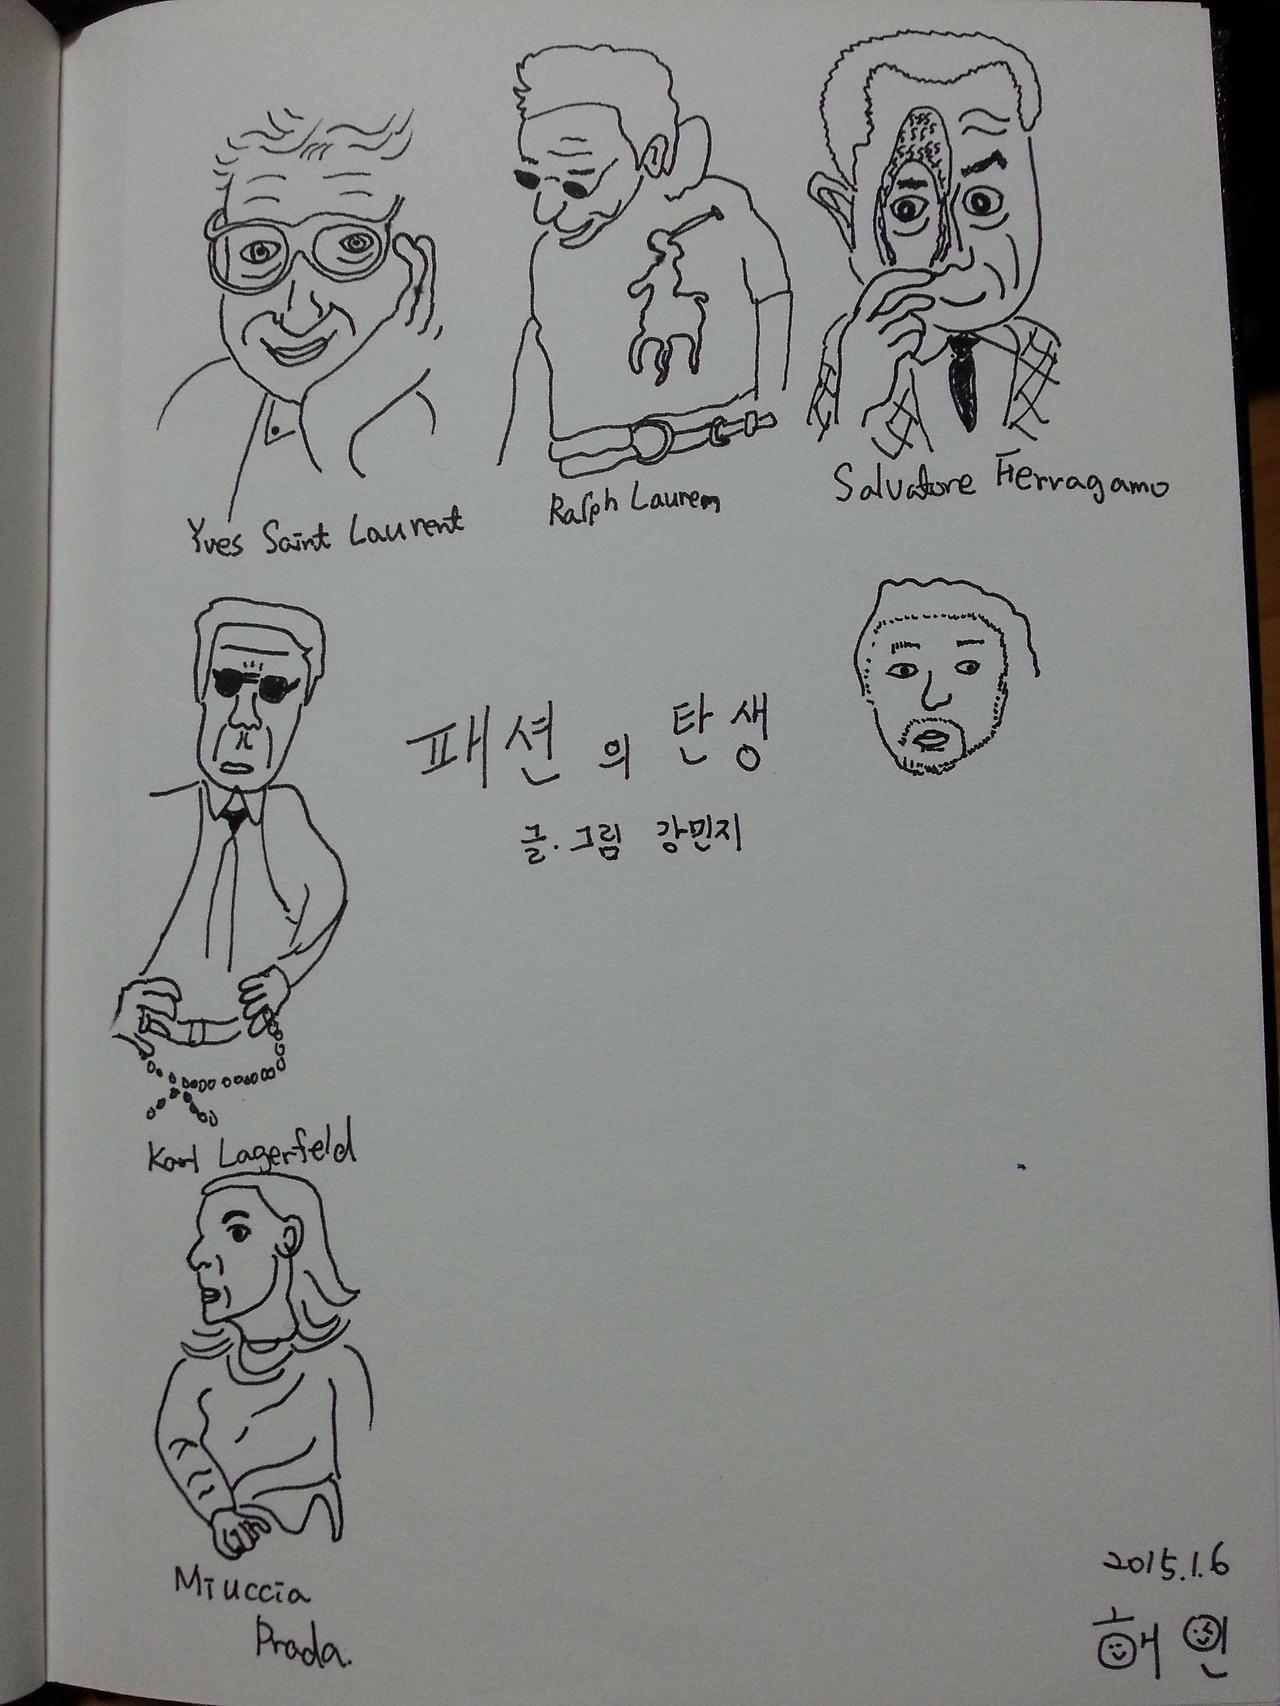 Yves Saint Laurent
Ralph Lauren
Salvatore Ferragamo
패션의 탄생
글.그림 강민지
Karl Lagerfeld
Miuccia
Prada.
2015.1.6
해인